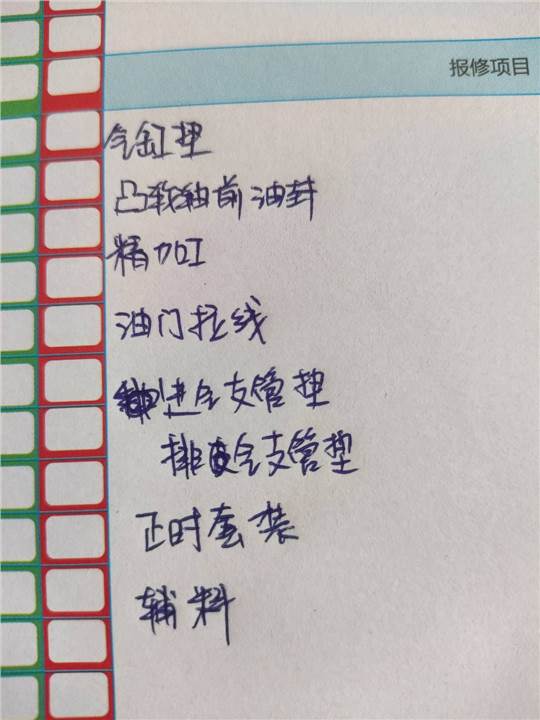 报修项目
气缸垫
凸轮轴前油封
精加工
油门拉线
进气支管垫
排气支管垫
正时套装
辅料